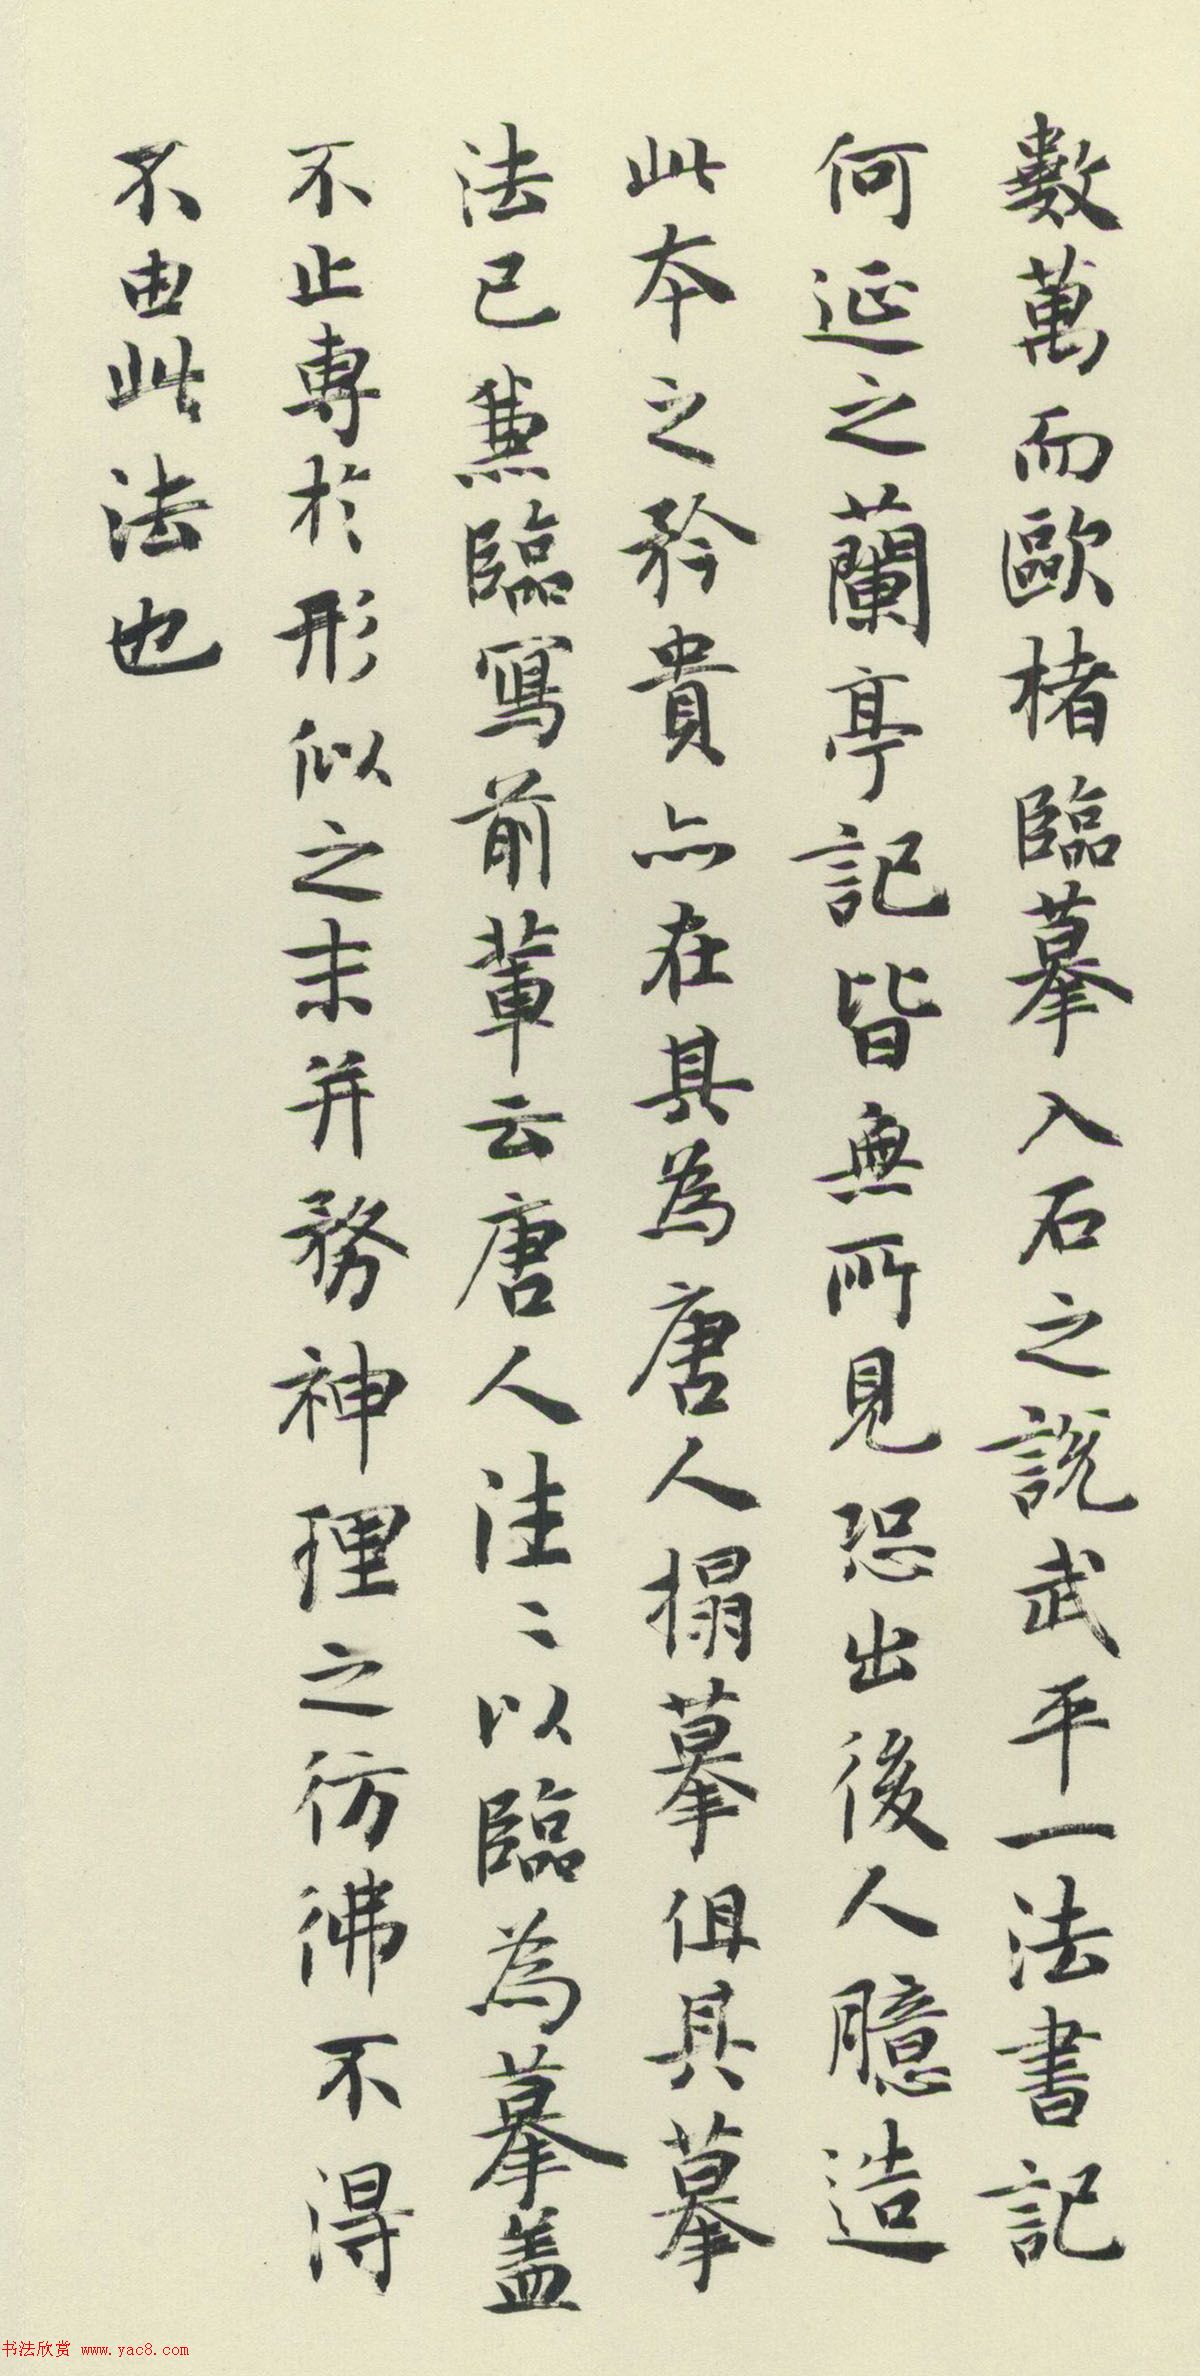 數萬而歐楮臨摹入石之說武平一法書記
何延之蘭亭記皆無所見恐出後人臆造
此本之矜貴亦在其為唐人搨摹但其摹
法已兼臨寫前輩云唐人往〻以臨為摹蓋
不止專於形似之末并務神理之彷彿不得
不由此法也
书法欣赏 www.yac8.com